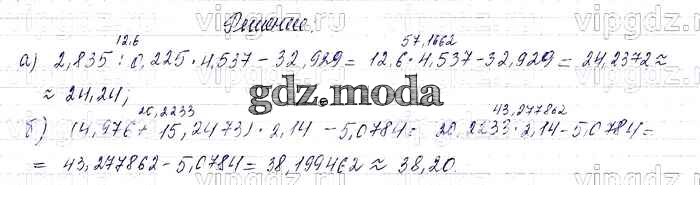 Решение.
12.6 57,1662
а) 2,835 : 0,225 · 4,537 - 32,929 = 12,6 · 4,537 - 32,929 = 24,2372 ≈
≈ 24,24;
gdz.moda
20,2233 43,277862
б) (4,976 + 15,2473) · 2,14 - 5,0784 = 20,2233 · 2,14 - 5,0784 =
= 43,277862 - 5,0784 = 38,199462 ≈ 38,20.
vipgdz.ru